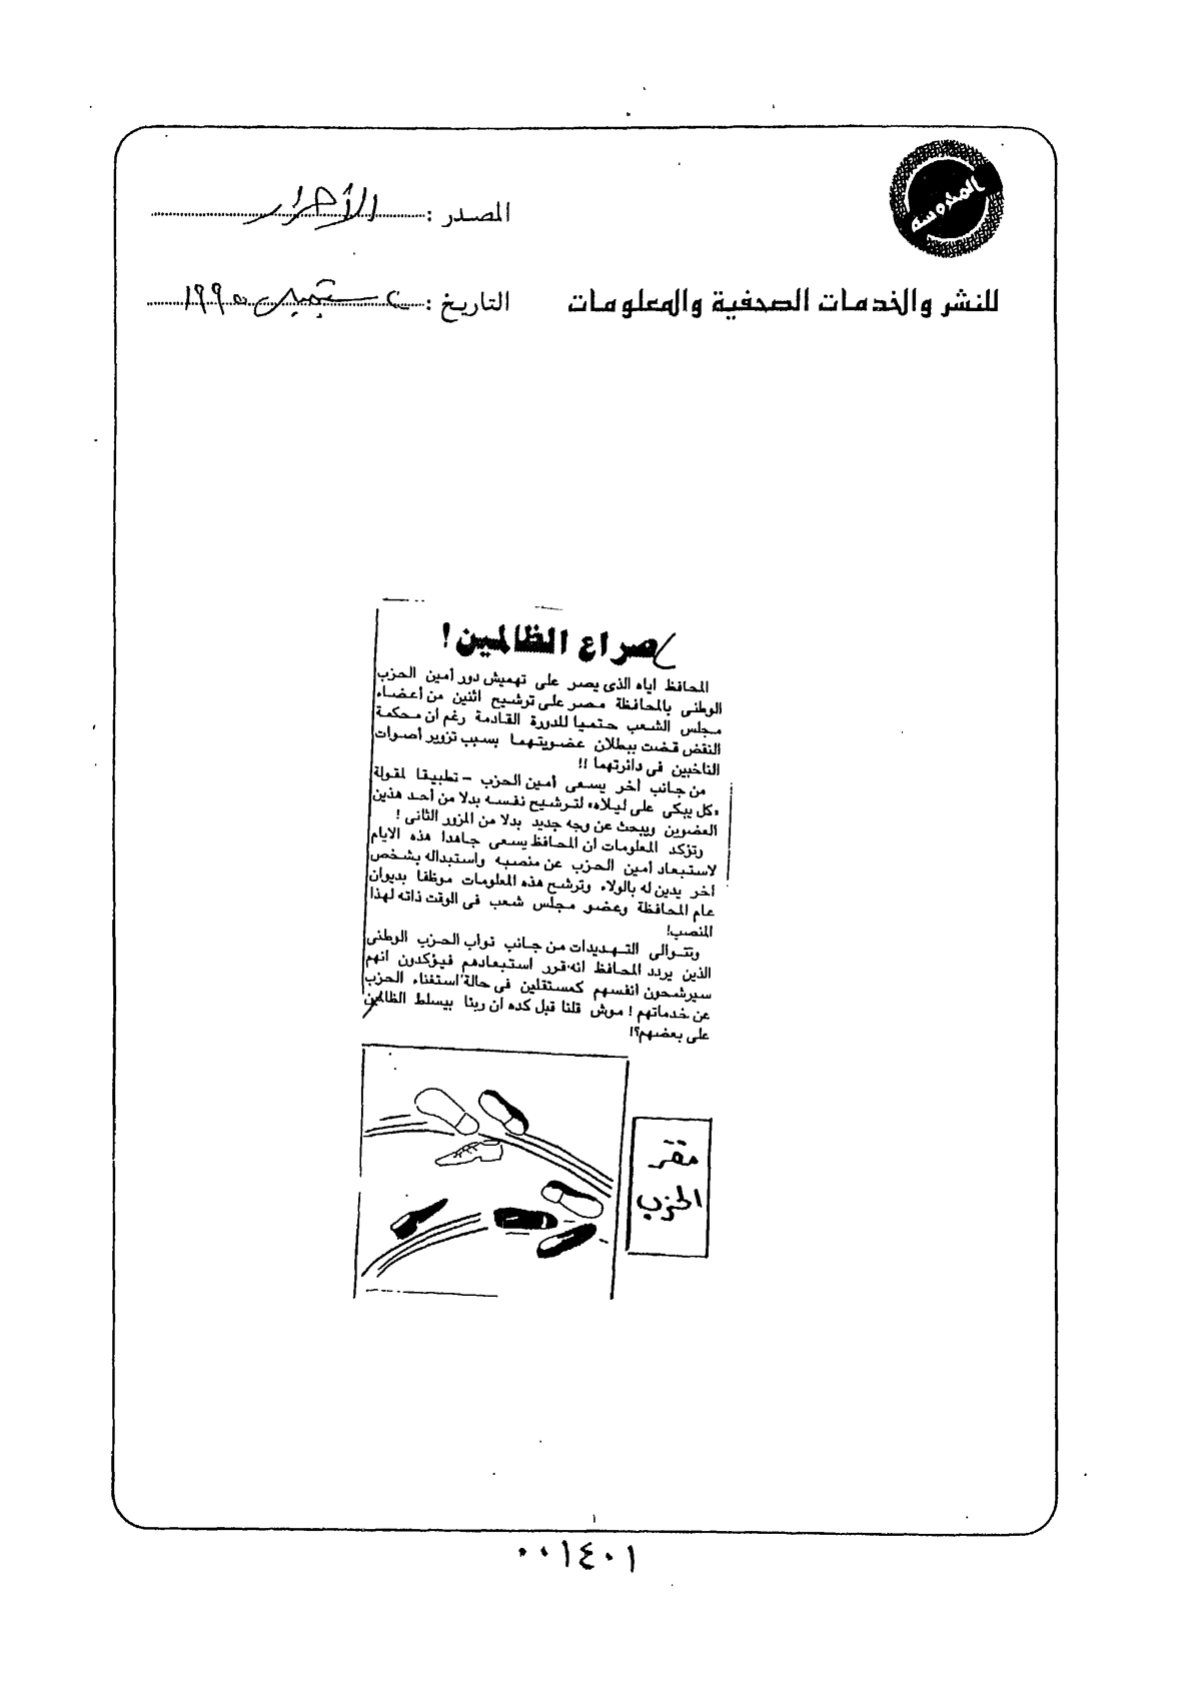 المحروسة
المصدر : الأحرار
للنشر والخدمات الصحفية والمعلومات
التاريخ : سبتمبر ١٩٩٥
صراع الظالمين !
المحافظ اياه الذى يصر على تهميش دور أمين الحزب
الوطنى بالمحافظة مصر على ترشيح اثنين من أعضاء
مجلس الشعب حتميا للدورة القادمة رغم أن محكمة
النقض قضت ببطلان عضويتهما بسبب تزوير أصوات
الناخبين فى دائرتهما !!
من جانب أخر يسعى أمين الحزب - تطبيقا لمقولة
«كل يبكى على ليلاه» لترشيح نفسه بدلا من أحد هذين
العضوين ويبحث عن وجه جديد بدلا من المزور الثانى !
وتؤكد المعلومات ان المحافظ يسعى جاهدا هذه الايام
لاستبعاد أمين الحزب عن منصبه واستبداله بشخص
أخر يدين له بالولاء وترشح هذه المعلومات موظفا بديوان
عام المحافظة وعضو مجلس شعب فى الوقت ذاته لهذا
المنصب!
وتتوالى التهديدات من جانب نواب الحزب الوطنى
الذين يردد المحافظ انه قرر استبعادهم فيؤكدون انهم
سيرشحون انفسهم كمستقلين فى حالة استغناء الحزب
عن خدماتهم ! موش قلنا قبل كده ان ربنا بيسلط الظالمين
على بعضهم؟!
مقر
الحزب
٠٠١٤٠١